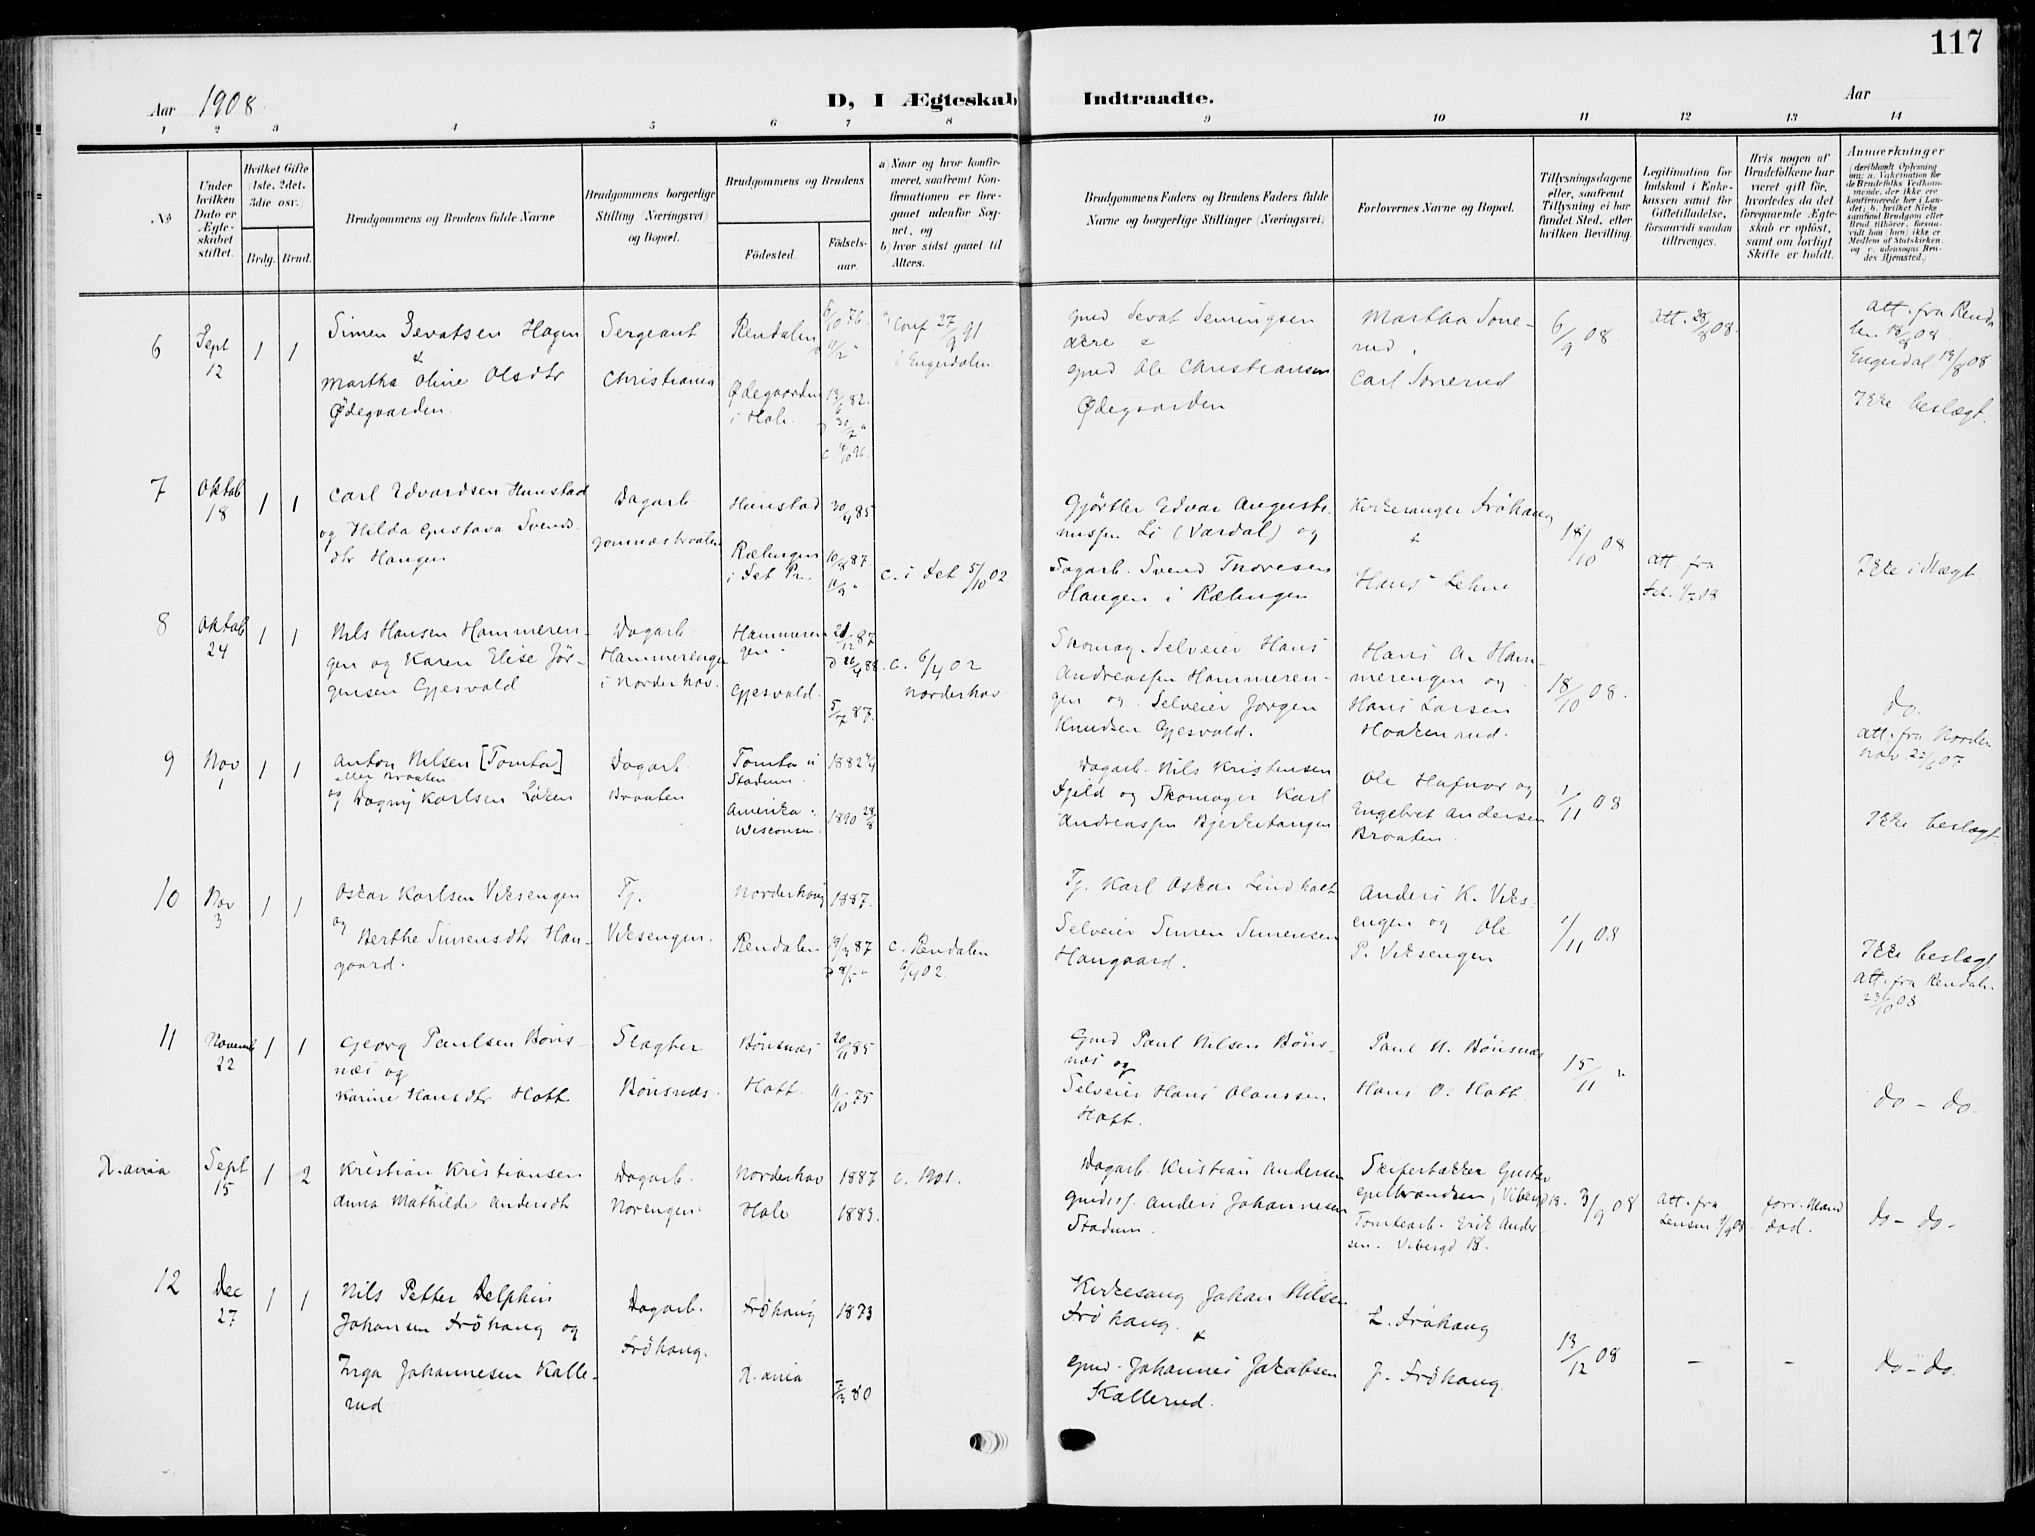 117
Aar 1908
D, I Ægteskab Indtraadte.
Aar
1 2 3 4 5 6 7 8 9 10 11 12 13 14
No
Under hvilken Dato er Ægteskabet stiftet.
Hvilket Gifte (1ste, 2det, 3die osv.)
Brdg. Brud.
Brudgommens og Brudens fulde Navne
Brudgommens borgerlige Stilling (Næringsvei) og Bopæl.
Brudgommens og Brudens
Fødested.
Fødselsaar.
a) Naar og hvor konfirmeret, saafremt Konfirmationen er foregaaet udenfor Sognet, og
b) hvor sidst gaaet til Alters.
Brudgommens Faders og Brudens Faders fulde Navne og borgerlige Stillinger (Næringsvei)
Forlovernes Navne og Bopæl.
Tillysningsdagene eller, saafremt Tillysning ei har fundet Sted, efter hvilken Bevilling.
Legitimation for Indskud i Enkekassen samt for Giftetilladelse, forsaavidt saadan tiltrænges.
Hvis nogen af Brudefolkene har været gift før, hvorledes da det foregaaende Ægteskab er opløst, samt om lovligt Skifte er holdt.
Anmærkninger
(deriblandt Oplysning om: a. Vakcination for de Brudefolks Vedkommende, der ikke ere konfirmerede her i Landet; b. hvilket Kirkesamfund Brudgom eller Brud tilhører, forsaavidt han (hun) ikke er Medlem af Statskirken, og c. udensogns Brudes Hjemsted.)
6 Sept 12 1 1
Simen Sevatsen Hagen
&
Martha Oline Olsdtr
Ødegaarden.
Sergeant
Christiania
Rendalen
Ødegaarden
i Hole.
6/10 76.
13/6 82.
Conf 27/9 91
i Engerdalen
Gmd Sevat Semingsen
Gmd Ole Christiansen
Ødegaarden
Martha Sone-
rud.
Carl Sonerud
6/9 08
Att. 28/8 08.
Att. fra Renda
len 18/8 08
Engerdal 19/8 08
Ikke beslægt.
7 Oktob 18 1 1
Carl Edvardsen Hunstad
og Hilda Gustava Svends-
dtr Haugen
Dagarb.
Gomnæsbraaten
Hunstad
Rælingen
i Fet Pr.
30/4 85
10/8 87
c. i Fet 5/10 02
Gjørtler Edvar Auguste-
nussen Li (Vardal) og
Dagarb. Svend Thoresen
Haugen i Rælingen
Kirkesanger Frøhaug
&
Hans Lehne
18/10 08
Att. fra
Fet.
8 Oktob 24 1 1
Nils Hansen Hammeren-
gen og Karen Elise Jør-
gensen Gjesvold
Dagarb.
Hammerengen
i Norderhov.
Hammeren
gen.
Gjesvold.
21/12 87
D 22/4 88
5/7 87.
c. 6/4 02
Norderhov
Skomag. Selveier Hans
Andreassen Hammeren-
gen og Selveier Jørgen
Knudsen Gjesvold.
Hans A. Ham-
merengen og
Hans Larsen
Haakenrud.
18/10 08.
do.
Att. fra Norder
hov.
9 Nov 1 1 1
Anton Nilsen [Tomta]
eller Braaten
og Dagny Karlsen Løken
Dagarb.
Braaten
Tomta u
Stadum.
Amerika
Wisconsin.
1882
1890 28/8
Dagarb. Nils Kristensen
Fjeld og Skomager Karl
Andreassen Bjerketangen
Ole Hafnor og
Engebret Andersen
Braaten.
1/11 08
Ikke beslægt.
10 Nov 3 1 1
Oskar Karlsen Viksengen
og
Berthe Simensdtr Han-
gaard.
Tj.
Viksengen.
Norderhov
Rendalen
1887.
19/3 87
c. Rendalen
6/4 02
Tj. Karl Oskar Lindholt
Selveier Simen Simensen
Haugaard.
Anders K. Viks-
engen og Ole
P. Viksengen
1/11 08
Ikke beslægt
Att. fra Rendalen
23/10 08
11 Novemb 22 1 1
Georg Paulsen Bøns-
næs og
Karine Hansdtr Hott
Slagter
Bønsnæs.
Bønsnæs
Hott.
20/11 85
11/10 75
Gmd Paul Nilsen Bøns-
næs og
Selveier Hans Olaussen
Hott.
Paul N. Bønsnæs
Hans O. Hott
15/11 "
do - do.
K.ania Sept 15 1 2
Kristian Kristiansen
&
Anna Mathilde Andersdtr
Dagarb.
Norengen
Norderhov
Hole
1887
1883.
c. 1901.
Dagarb. Kristian Andersen
Anders Johannesen
Stadum.
Gustav
Gulbrandsen, Vibergd 18.
Tomtearb. Erik Ander-
sen. Vibergd 18.
3/9 08
Att. fra
forr. Mand
død.
do - do.
12 Dec 27 1 1
Nils Petter Delphin
Johansen Frøhaug og
Inga Johannesen Kalle-
rud
Dagarb.
Frøhaug.
Frøhaug
K.ania
1873
7/3 80
Kirkesang. Johan Nilsen
Frøhaug.
&
Gmd. Johannes Jakobsen
Kallerud.
L. Frøhaug
J. Frøhaug.
13/12 08
- -
do - do.